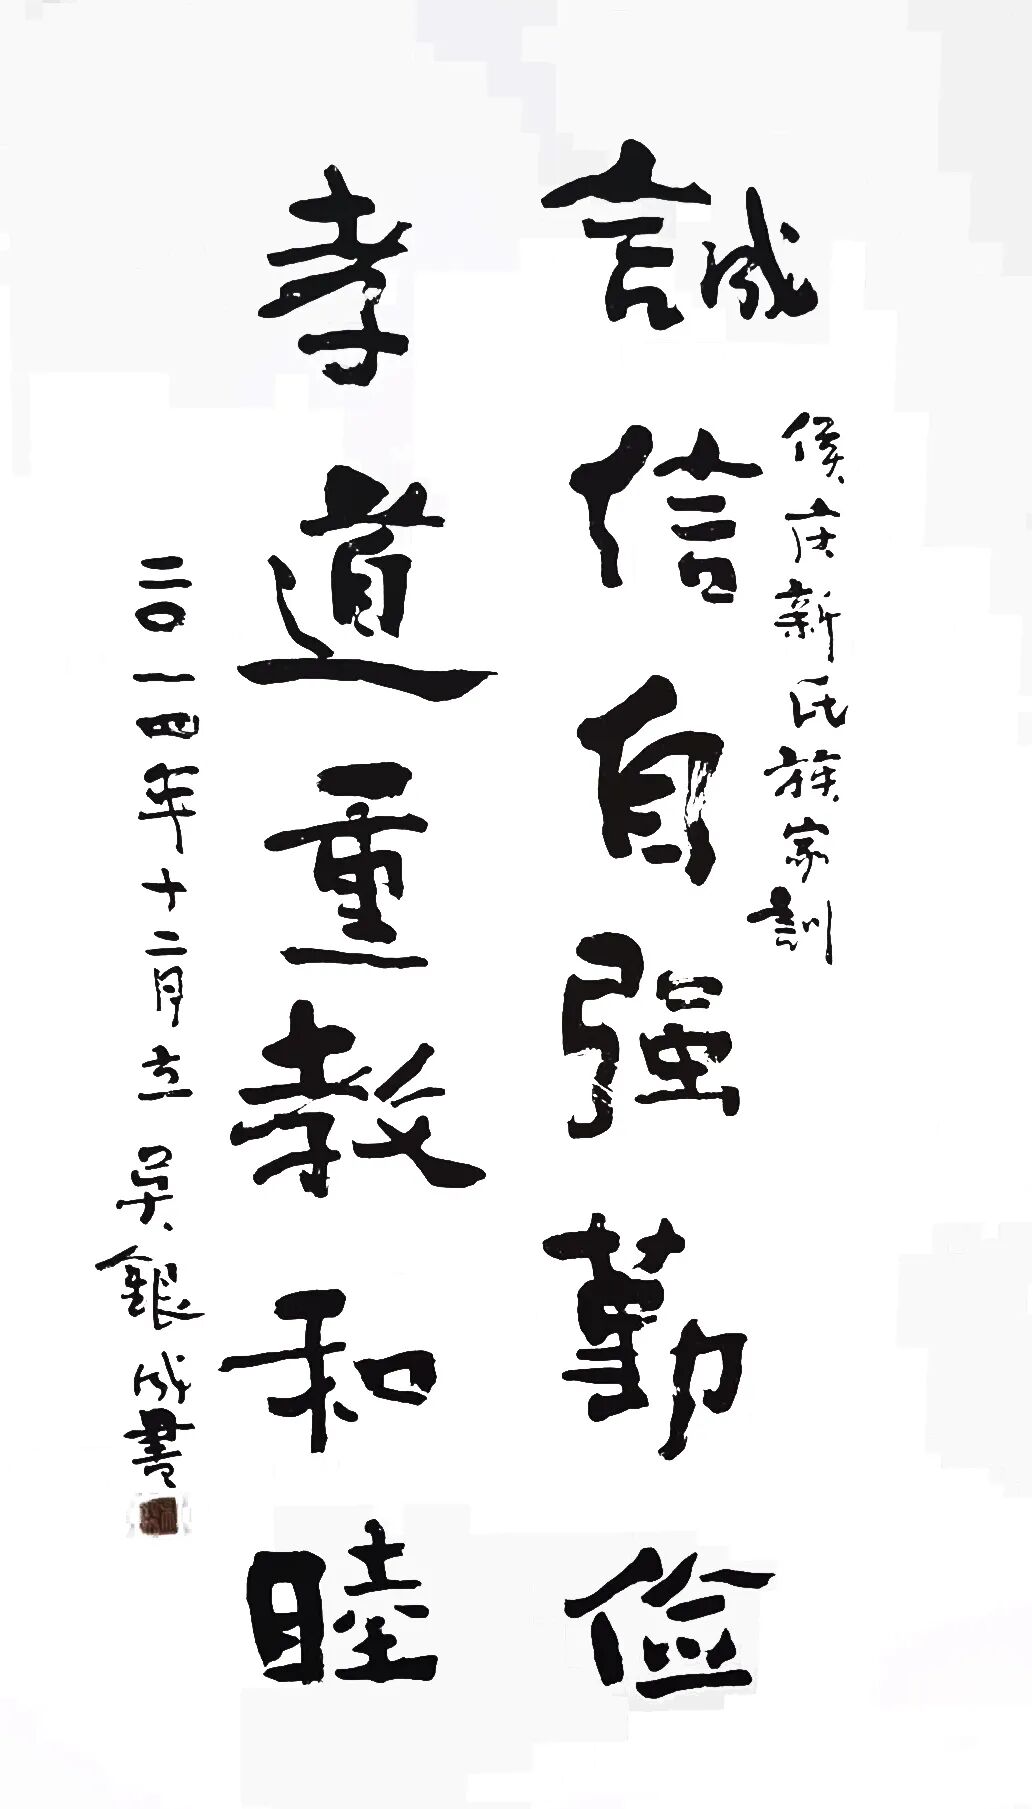 侯庄新氏族家訓
誠信自强勤俭
孝道重教和睦
二〇一四年十二月立 吴銀成書